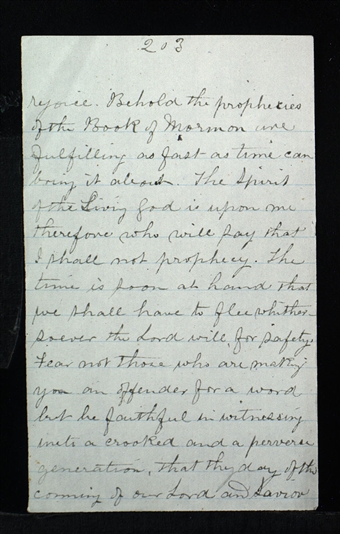 203
rejoice. Behold the prophecies
of the Book of Mormon are
fulfilling as fast as time can
bring it about. The Spirit
of the Living God is upon me
therefore who will say that
I shall not prophecy. The
time is soon at hand that
we shall have to flee whither-
soever the Lord will, for safety.
Fear not those who are making
you an offender for a word
but be faithful in witnessing
unto a crooked and a perverse
generation, that the day of the
coming of our Lord and Savior